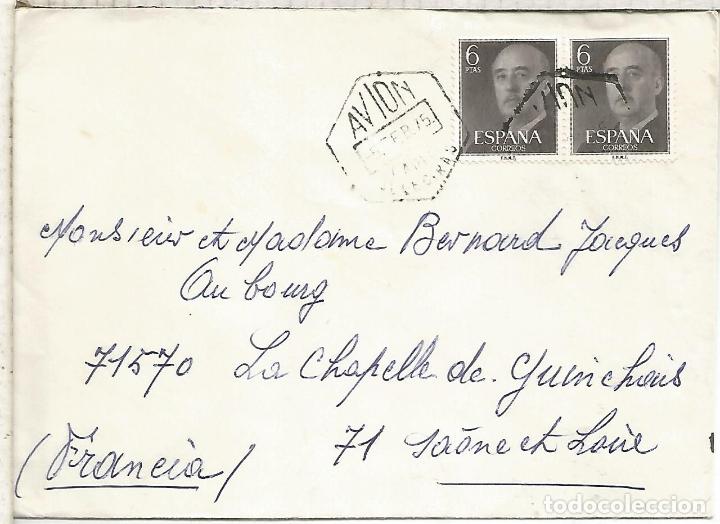 6
PTAS
ESPAÑA
CORREOS
6
PTAS
ESPAÑA
CORREOS
AVION
FEB. 75
AVION
Monsieur et Madame Bernard Jacques
Au bourg
71570 La Chapelle de Guinchais
71 Saône et Loire
(Francia)
todocoleccion